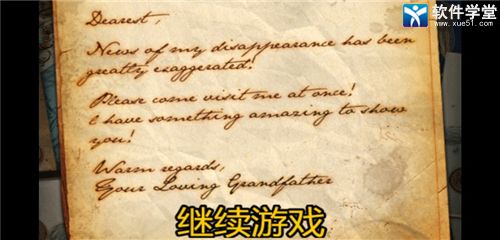 软件学堂
www.xue51.com
Dearest,
News of my disappearance has been
greatly exaggerated!
Please come visit me at once!
I have something amazing to show
you!
Warm regards,
Your Loving Grandfather
继续游戏